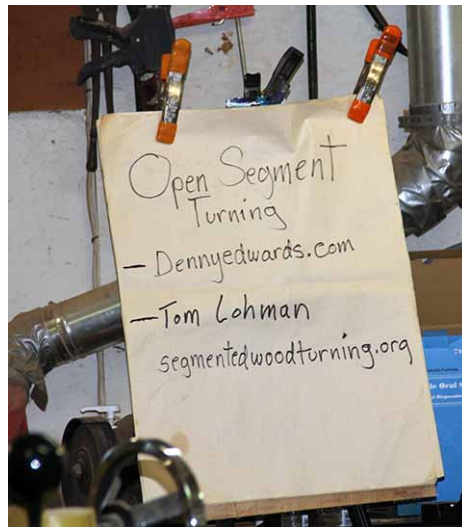 Open Segment
Turning
— Dennyedwards.com
— Tom Lohman
segmentedwoodturning.org